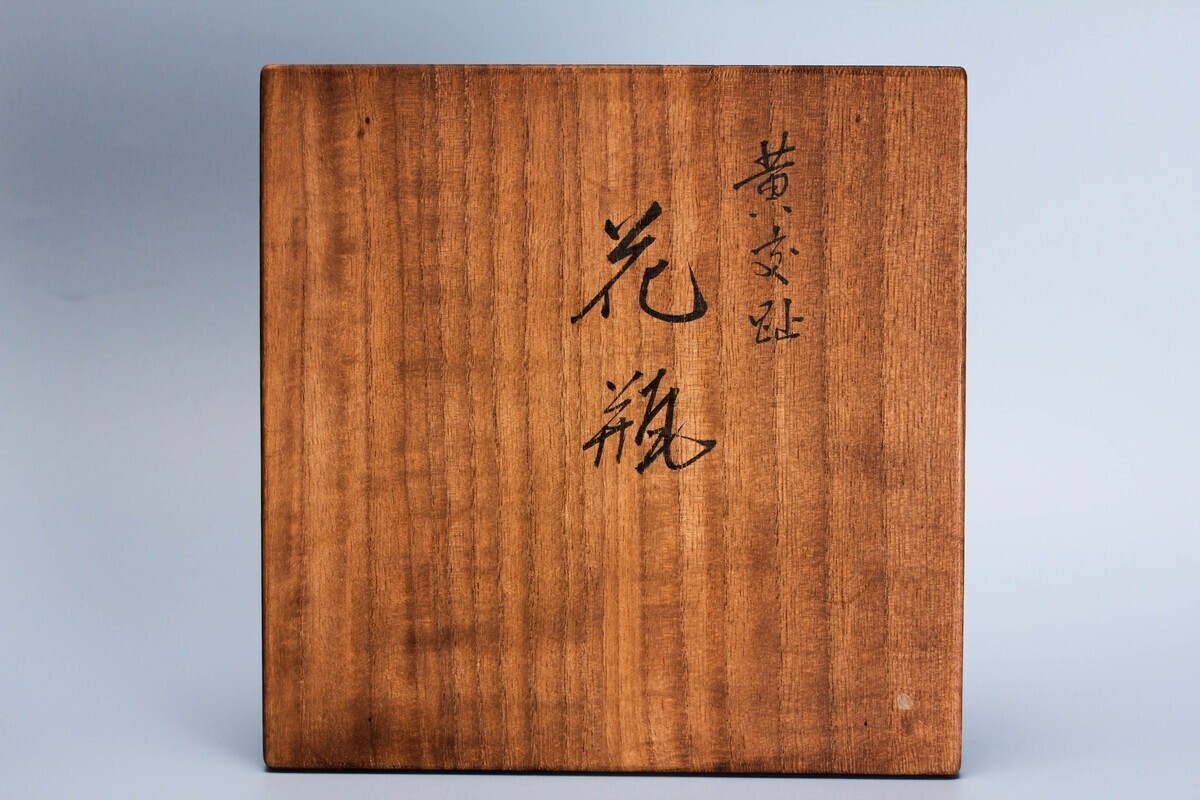 黄交趾
花瓶